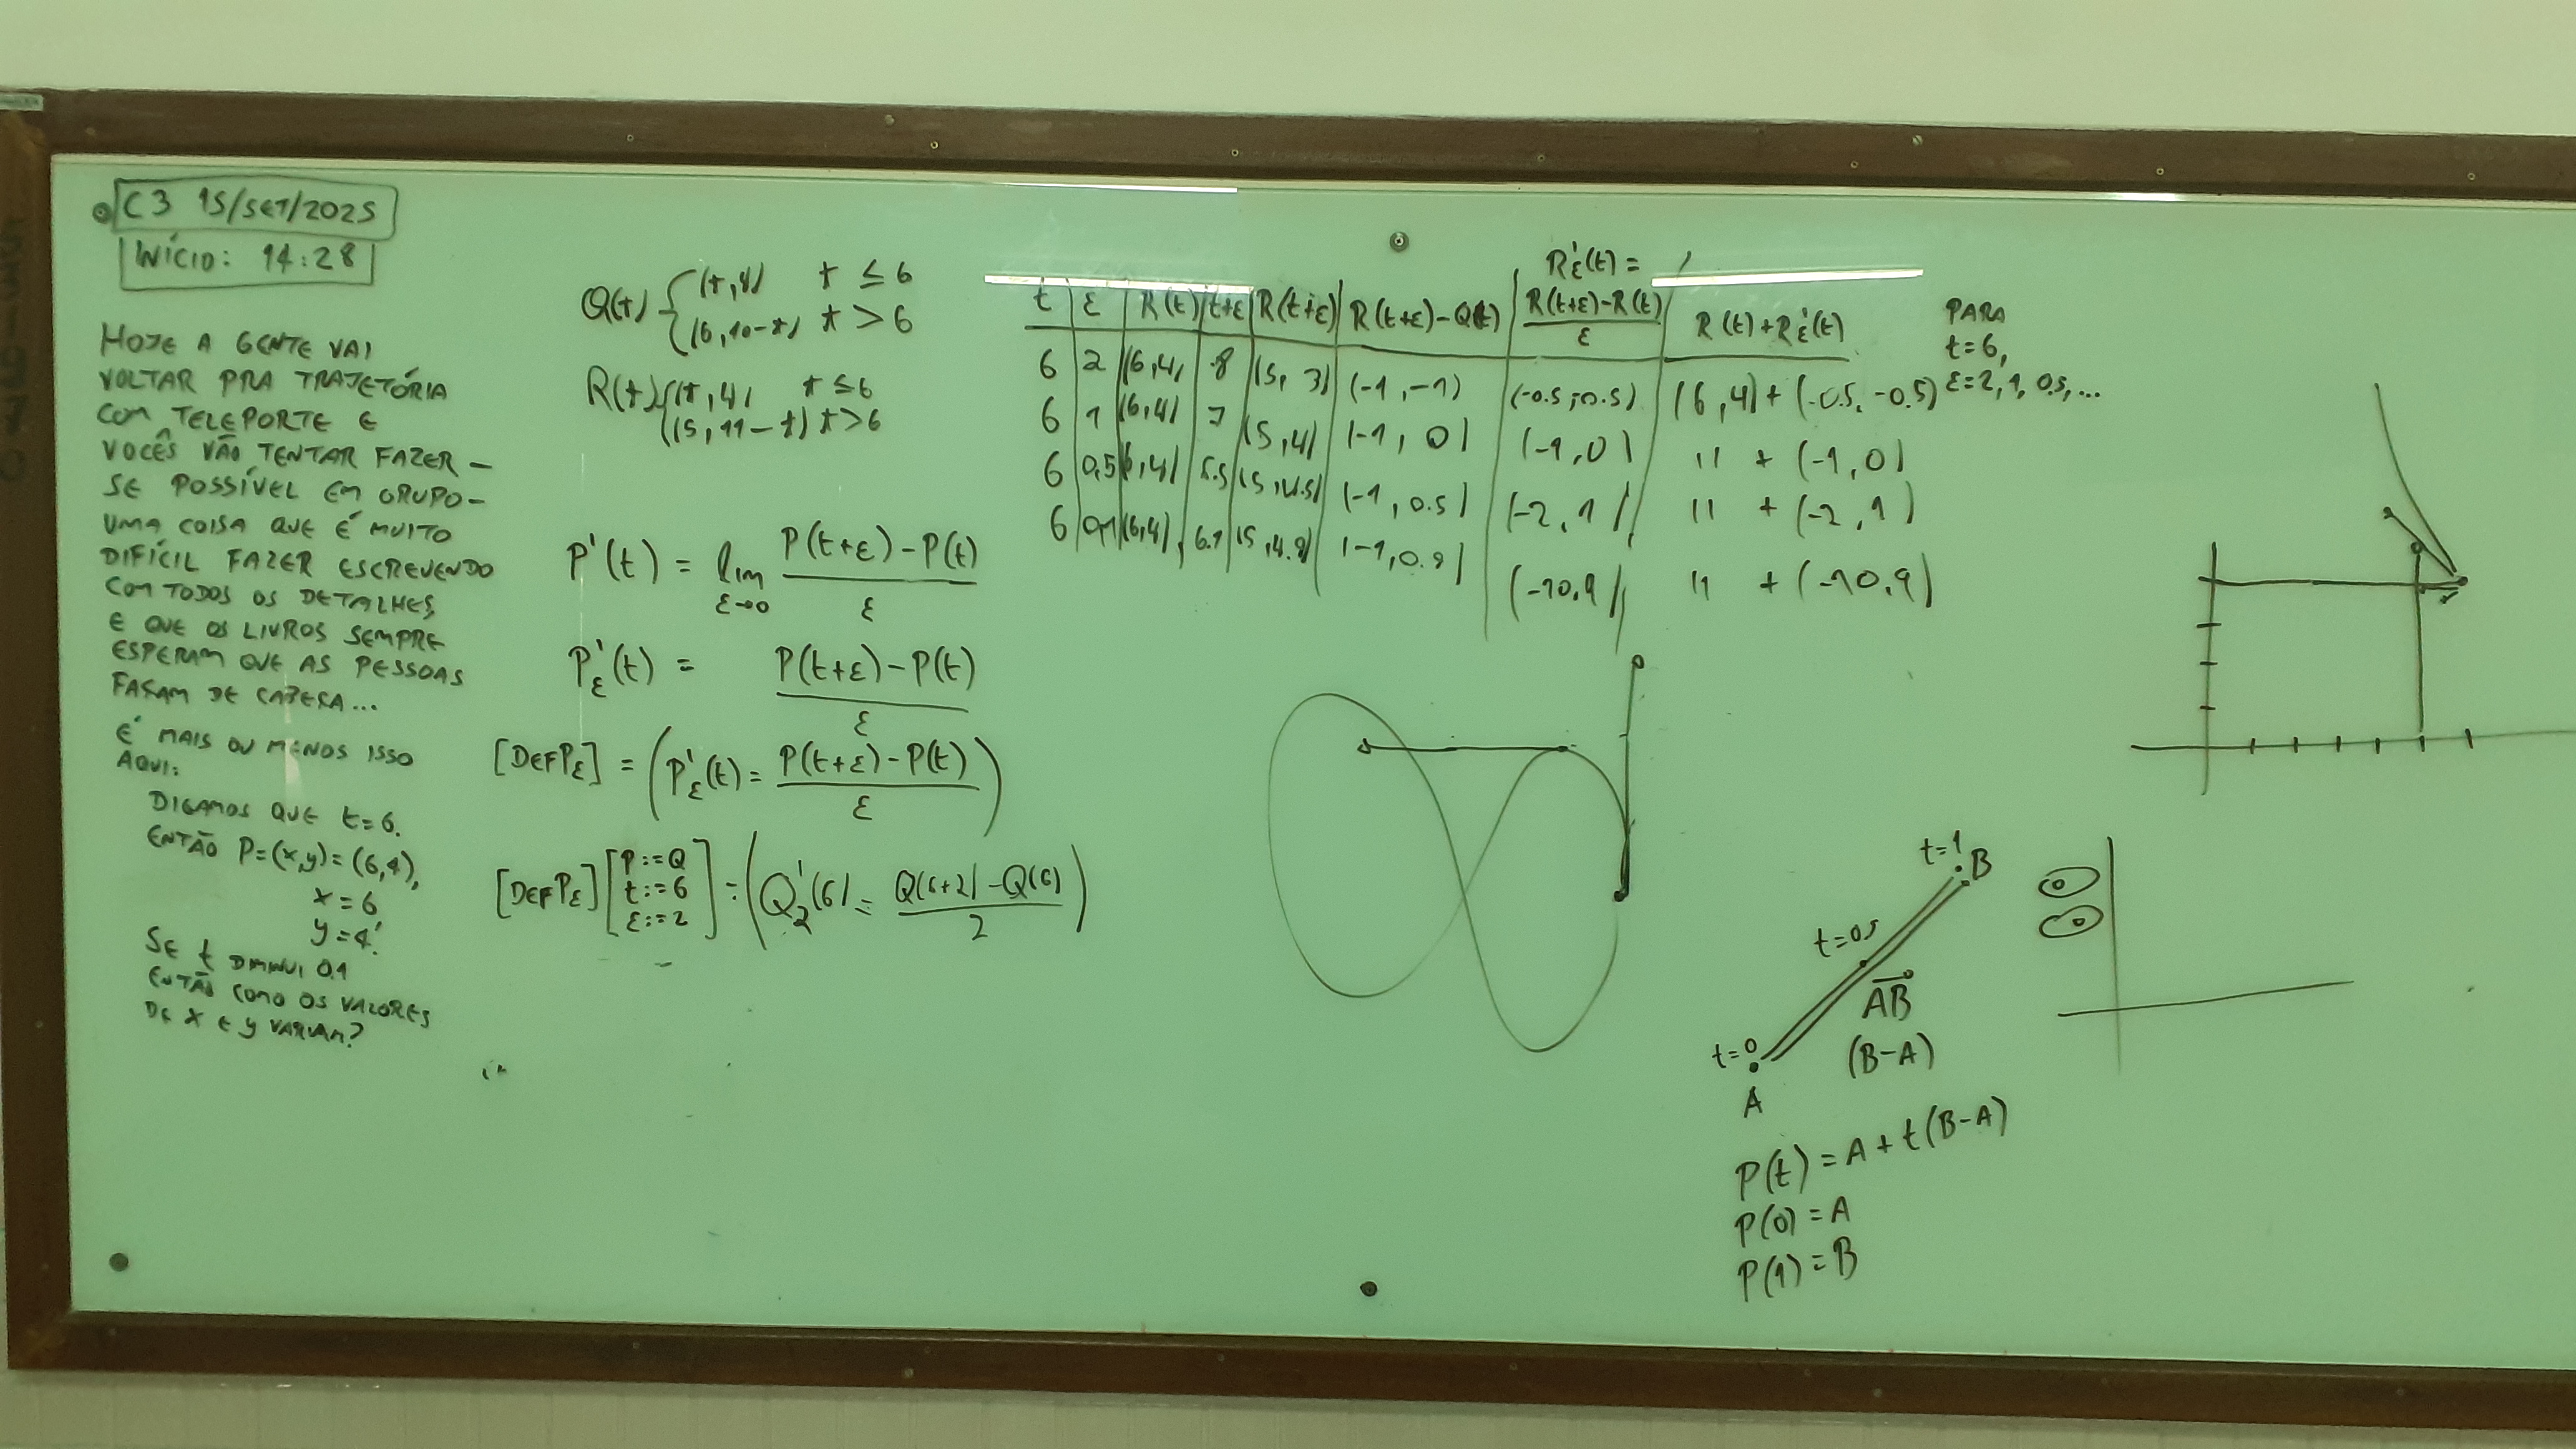 C3 15/SET/2025
INÍCIO: 14:28
HOJE A GENTE VAI
VOLTAR PRA TRAJETÓRIA
COM TELEPORTE E
VOCÊS VÃO TENTAR FAZER –
SE POSSÍVEL EM GRUPO –
UMA COISA QUE É MUITO
DIFÍCIL FAZER ESCREVENDO
COM TODOS OS DETALHES,
E QUE OS LIVROS SEMPRE
ESPERAM QUE AS PESSOAS
FAÇAM DE CABEÇA...
É MAIS OU MENOS ISSO
AQUI:
DIGAMOS QUE t=6.
ENTÃO P=(x,y)=(6,4),
x=6
y=4.
SE t DIMINUI 0.1
ENTÃO COMO OS VALORES
DE x E y VARIAM?
Q(t) { (t,4) t ≤ 6
(6,10-t) t > 6
R(t) { (t,4) t ≤ 6
(5,11-t) t > 6
P'(t) = lim ε→0 P(t+ε)-P(t) / ε
P'ε(t) = P(t+ε)-P(t) / ε
[DEFPε] = (P'ε(t) = P(t+ε)-P(t) / ε)
[DEFPε] [P:=Q t:=6 ε:=2] = (Q'2(6) = Q(6+2)-Q(6) / 2)
R'ε(t) =
t | ε | R(t) | t+ε | R(t+ε) | R(t+ε)-Q(t) | R(t+ε)-R(t) / ε | R(t)+R'ε(t)
6 | 2 | (6,4) | 8 | (5,3) | (-1,-1) | (-0.5,-0.5) | (6,4)+(-0.5,-0.5)
6 | 1 | (6,4) | 7 | (5,4) | (-1,0) | (-1,0) | '' + (-1,0)
6 | 0,5 | (6,4) | 6.5 | (5,4.5) | (-1,0.5) | (-2,1) | '' + (-2,1)
6 | 0,1 | (6,4) | 6.1 | (5,4.9) | (-1,0.9) | (-10,9) | '' + (-10,9)
PARA
t=6,
ε=2,1,0.5,...
t=1
B
t=0.5
AB
(B-A)
t=0
A
P(t) = A + t(B-A)
P(0) = A
P(1) = B